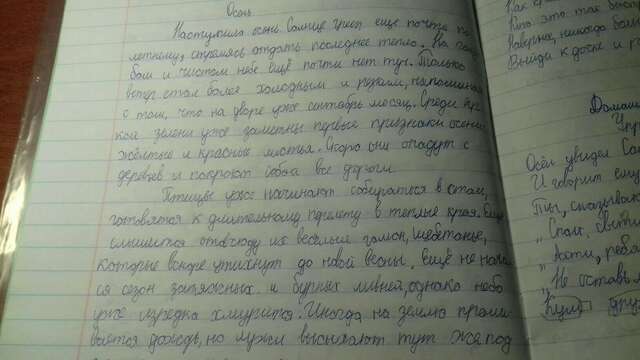 Осень
Наступила осень Солнце греет еще почти по
летнему, стремясь отдать последнее тепло. На голу
бом и чистом небе ещё почти нет туч. Только
ветер стал более холодным и резким, напоминая
о том, что на дворе уже сентябрь месяц. Среди яр
кой зелени уже заметны первые признаки осени
жёлтые и красные листья. Скоро они опадут с
деревьев и покроют собой все дороги.
Птицы уже начинают собираться в стаи,
готовятся к длительному перелету в теплые края. Ещё
слышится отовсюду их веселый гомон, щебетанье,
которые вскоре утихнут до новой весны. Ещё не начал
ся сезон затяжных и бурных ливней, однако небо
уже изредка хмурится. Иногда на землю проли
вается дождь, но лужи высыхают тут же под
Как
Кто это так
Наверно, никогда
Выйди к дочке и
Домаш
Упр
Осёл увидел Сол
И говорит ему
Ты, сказывают
"Спать, свет
"Ахти, ребя
"Не оставь
Кум